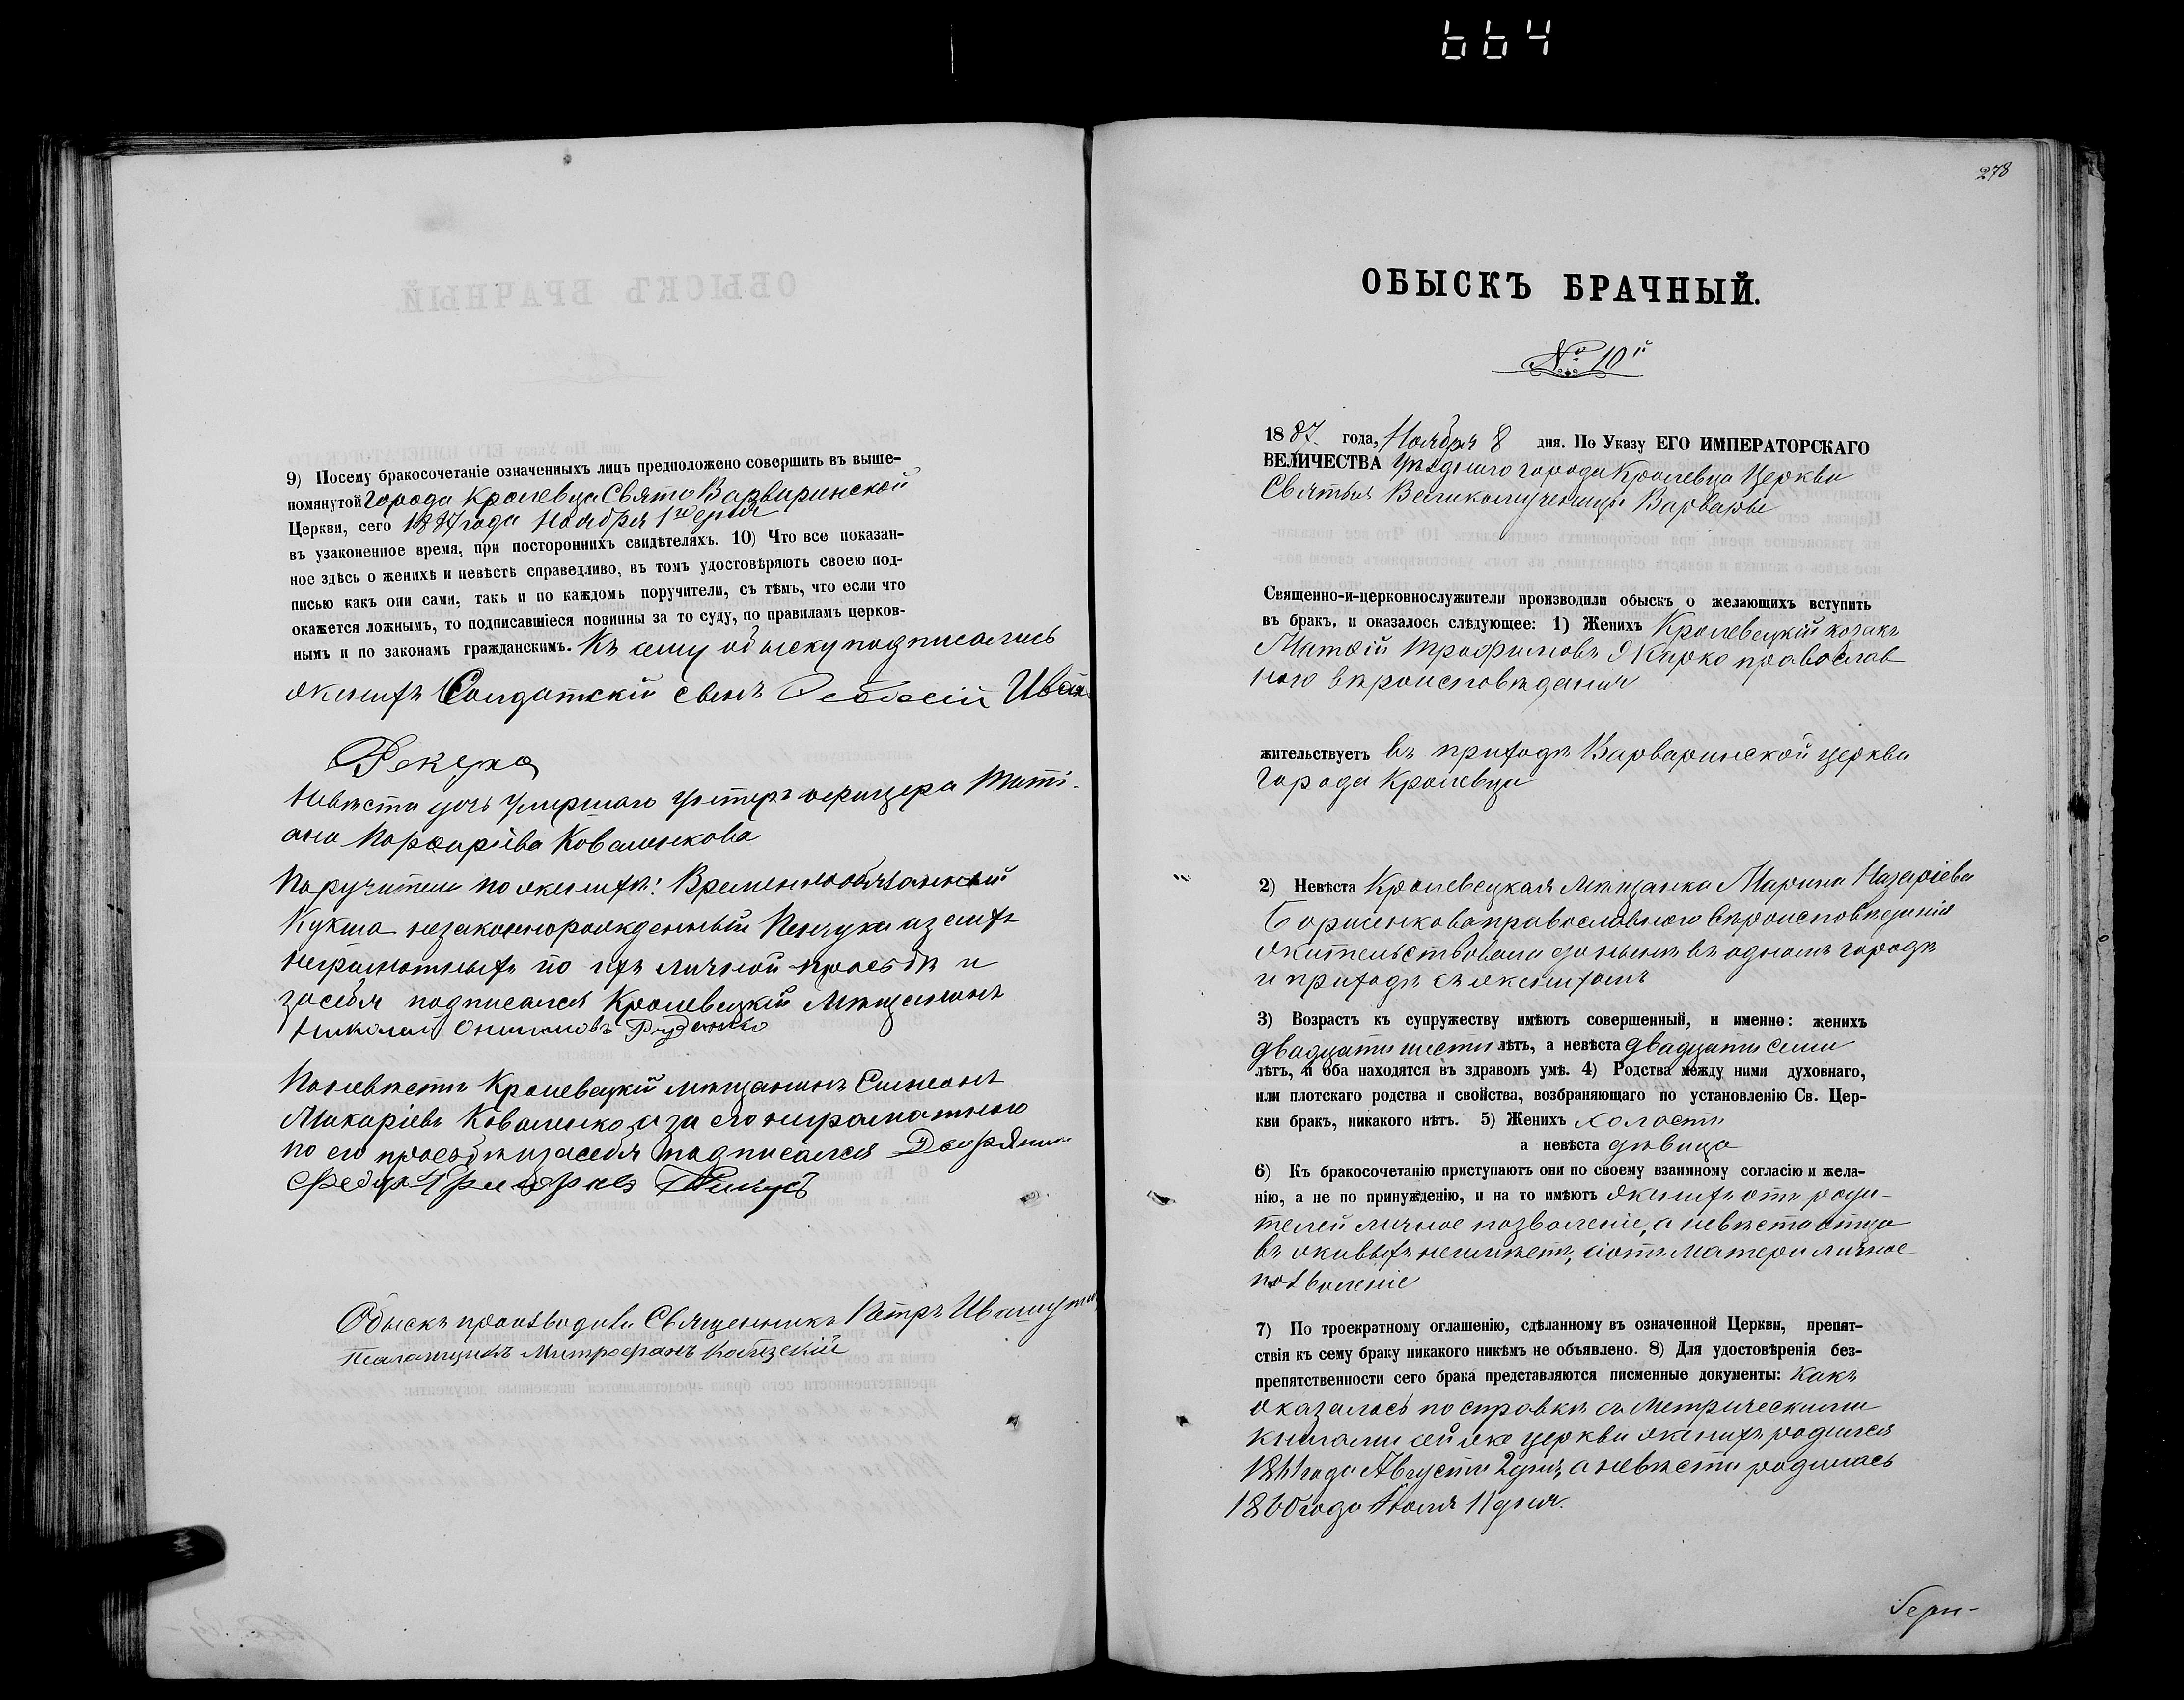 664
9) Посему бракосочетаніе означенныхъ лицъ предположено совершить въ выше-
помянутой Города Кролевца Свято Варваринской
Церкви, сего 1887 года Ноября 1го дня
въ узаконенное время, при постороннихъ свидѣтеляхъ. 10) Что все показан-
ное здѣсь о женихѣ и невѣстѣ справедливо, въ томъ удостовѣряютъ своею под-
писью какъ они сами, такъ и по каждомъ поручители, съ тѣмъ, что если что
окажется ложнымъ, то подписавшіеся повинны за то суду, по правиламъ церков-
нымъ и по законамъ гражданскимъ. Къ сему обыску подписались
женихъ Солдатскій сынъ Иван
Невѣста дочь умершаго унтеръ офицера Тати-
ана Порфиріева Коваленкова
Поручители по женихѣ: Временнообязанный
Кукша незаконнорожденный а за нихъ
неграмотныхъ по ихъ личной просьбѣ и
за себя подписался Кролевецкій Мѣщанинъ
Николай Руденко
По невѣстѣ Кролевецкій мѣщанинъ Симеонъ
Макаріевъ Коваленко а за его неграмотного
по его просьбѣ и за себя подписался Дворянин
Федор
Обыскъ производили Священникъ Петръ Ивашута
Псаломщикъ Митрофанъ
278
ОБЫСКЪ БРАЧНЫЙ.
№ 10й
1887 года, Ноября 8 дня. По Указу ЕГО ИМПЕРАТОРСКАГО
ВЕЛИЧЕСТВА Уѣзднаго города Кролевца Церкви
Святыя Великомученицы Варвары
Священно-и-церковнослужители производили обыскъ о желающихъ вступить
въ бракъ, и оказалось слѣдующее: 1) Женихъ Кролевецкій козакъ
Матѳій Трофимовъ Жарко православ
наго вѣроисповѣданія
жительствуетъ въ приходѣ Варваринской церкви
города Кролевца
2) Невѣста Кролевецкая Мѣщанка Марина Назаріева
Борисенкова православнаго вѣроисповѣданія
жительствовала донынѣ въ одномъ городѣ
и приходѣ съ женихомъ
3) Возрастъ къ супружеству имѣютъ совершенный, и именно: женихъ
двадцати шести лѣтъ, а невѣста двадцати семи
лѣтъ, и оба находятся въ здравомъ умѣ. 4) Родства между ними духовнаго,
или плотскаго родства и свойства, возбраняющаго по установленію Св. Цер-
кви бракъ, никакого нѣтъ. 5) Женихъ холостъ
а невѣста дѣвица
6) Къ бракосочетанію приступаютъ они по своему взаимному согласію и жела-
нію, а не по принужденію, и на то имѣютъ женихъ отъ роди-
телей личное позволеніе, а невѣста отца
въ живыхъ не имѣетъ, а отъ матери личное
позволеніе
7) По троекратному оглашенію, сдѣланному въ означенной Церкви, препят-
ствія къ сему браку никакого никѣмъ не объявлено. 8) Для удостовѣренія без-
препятственности сего брака представляются писменные документы: Какъ
оказалось по справкѣ съ Метрическими
книгами сей же церкви женихъ родился
года Августа 2 дня, а невѣста родилась
1860 года Іюля 11 дня.